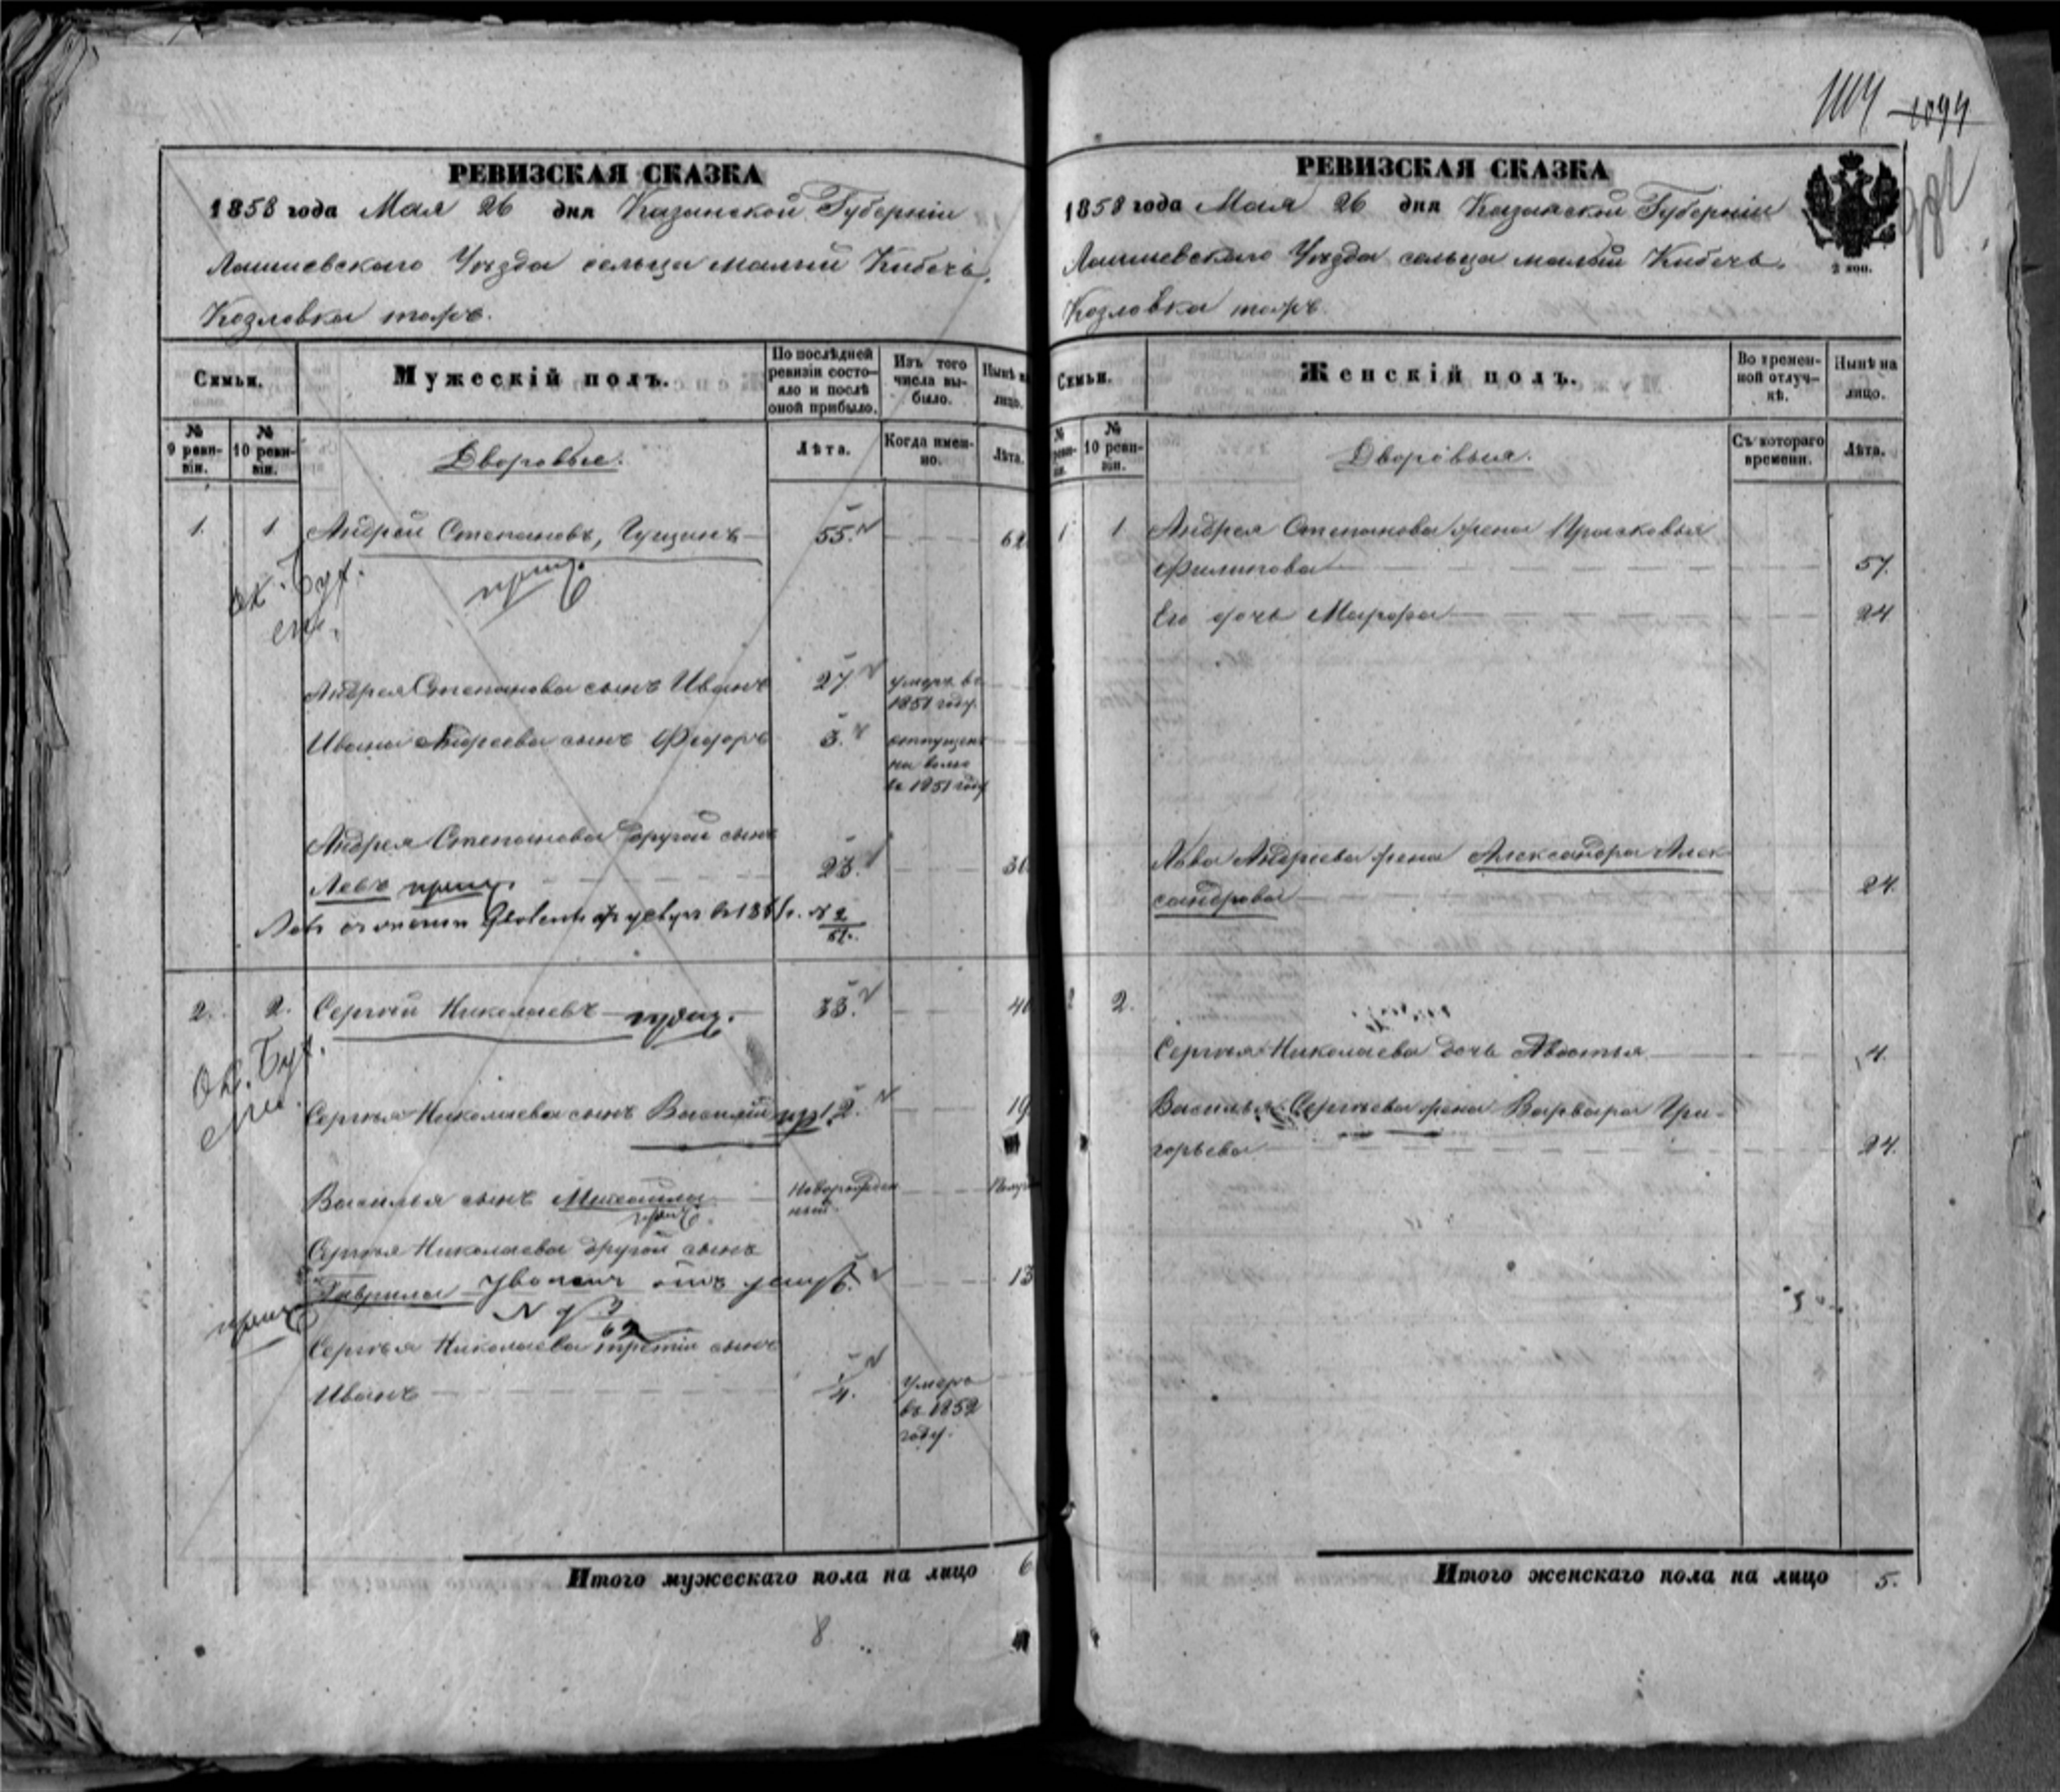 РЕВИЗСКАЯ СКАЗКА
1858 года Мая 26 дня Казанской Губернiи
Лаишевскаго Уѣзда сельца малый Кибечь,
Козловка тожъ.
Семьи.
Мужескiй полъ.
По послѣдней ревизiи состояло и послѣ оной прибыло.
Изъ того числа выбыло.
Нынѣ на лицо.
№ 9 ревизiи.
№ 10 ревизiи.
Дворовые.
Лѣта.
Когда именно.
Лѣта.
1. 1 Андрей Степановъ, Гущинъ 55. 62
Андрея Степанова сынъ Иванъ 27. умеръ въ
1851 году.
Ивана Андреева сынъ Федоръ 3. отпущенъ
на волю
въ 1851 году
Андрея Степанова другой сынъ
Левъ 23. 30
2. 2. Сергѣй Николаевъ 33. 40
Сергѣя Николаева сынъ Василiй 12. 19
Василья сынъ Михаила Новорожден
ный.
Сергѣя Николаева другой сынъ
Гаврила уволенъ 13
Сергѣя Николаева третiй сынъ
Иванъ 1/4. умеръ
въ 1852
году.
Итого мужескаго пола на лицо 6
8
1104 1094
РЕВИЗСКАЯ СКАЗКА
1858 года Мая 26 дня Казанской Губернiи
2 коп.
Лаишевскаго Уѣзда сельца малый Кибечь,
Козловка тожъ.
Семьи.
Женскiй полъ.
Во временной отлучкѣ.
Нынѣ на лицо.
№ ревизiи.
№ 10 ревизiи.
Дворовыя.
Съ котораго времени.
Лѣта.
1 1 Андрея Степанова жена Прасковья
Филипова 57.
Его дочь Марфа 24
Льва Андреева жена Александра Алек
сандрова 24.
2 2.
Сергѣя Николаева дочь Авдотья 4.
Василья Сергѣева жена Варвара Гри-
горьева 24.
Итого женскаго пола на лицо 5.